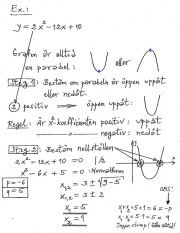 Ex.:
y = 2x² - 12x + 10
Grafen är alltid
en parabel: eller
Steg 1: Bestäm om parabeln är öppen uppåt
eller nedåt.
2 positiv ⟹ öppen uppåt
Regel: Är x²-koefficienten positiv: uppåt
" negativ: nedåt
Steg 2: Bestäm nollställen
2x² - 12x + 10 = 0 | /2
x² - 6x + 5 = 0 Normalform
p = -6
q = 5
x₁,₂ = 3 ± √9-5
x₁,₂ = 3 ± 2
x₁ = 5
x₂ = 1
OBS!